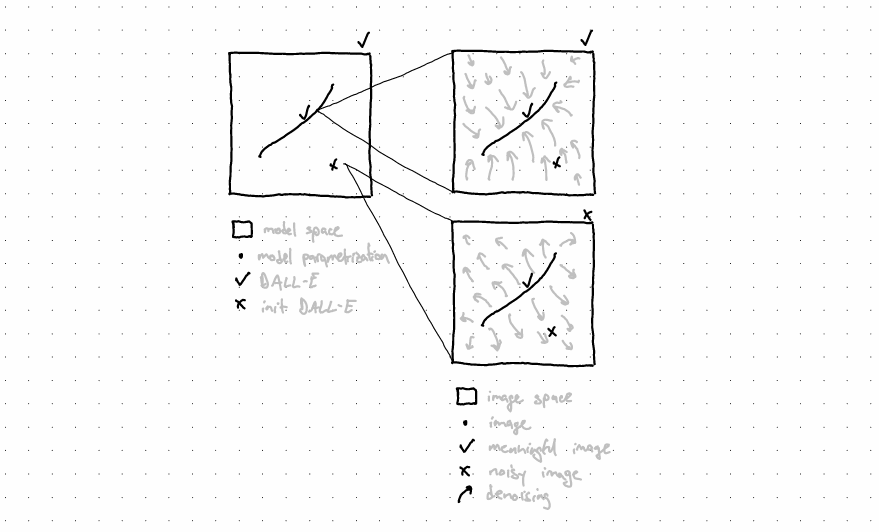 model space
model parametrization
DALL-E
init DALL-E
image space
image
meaningful image
noisy image
denoising